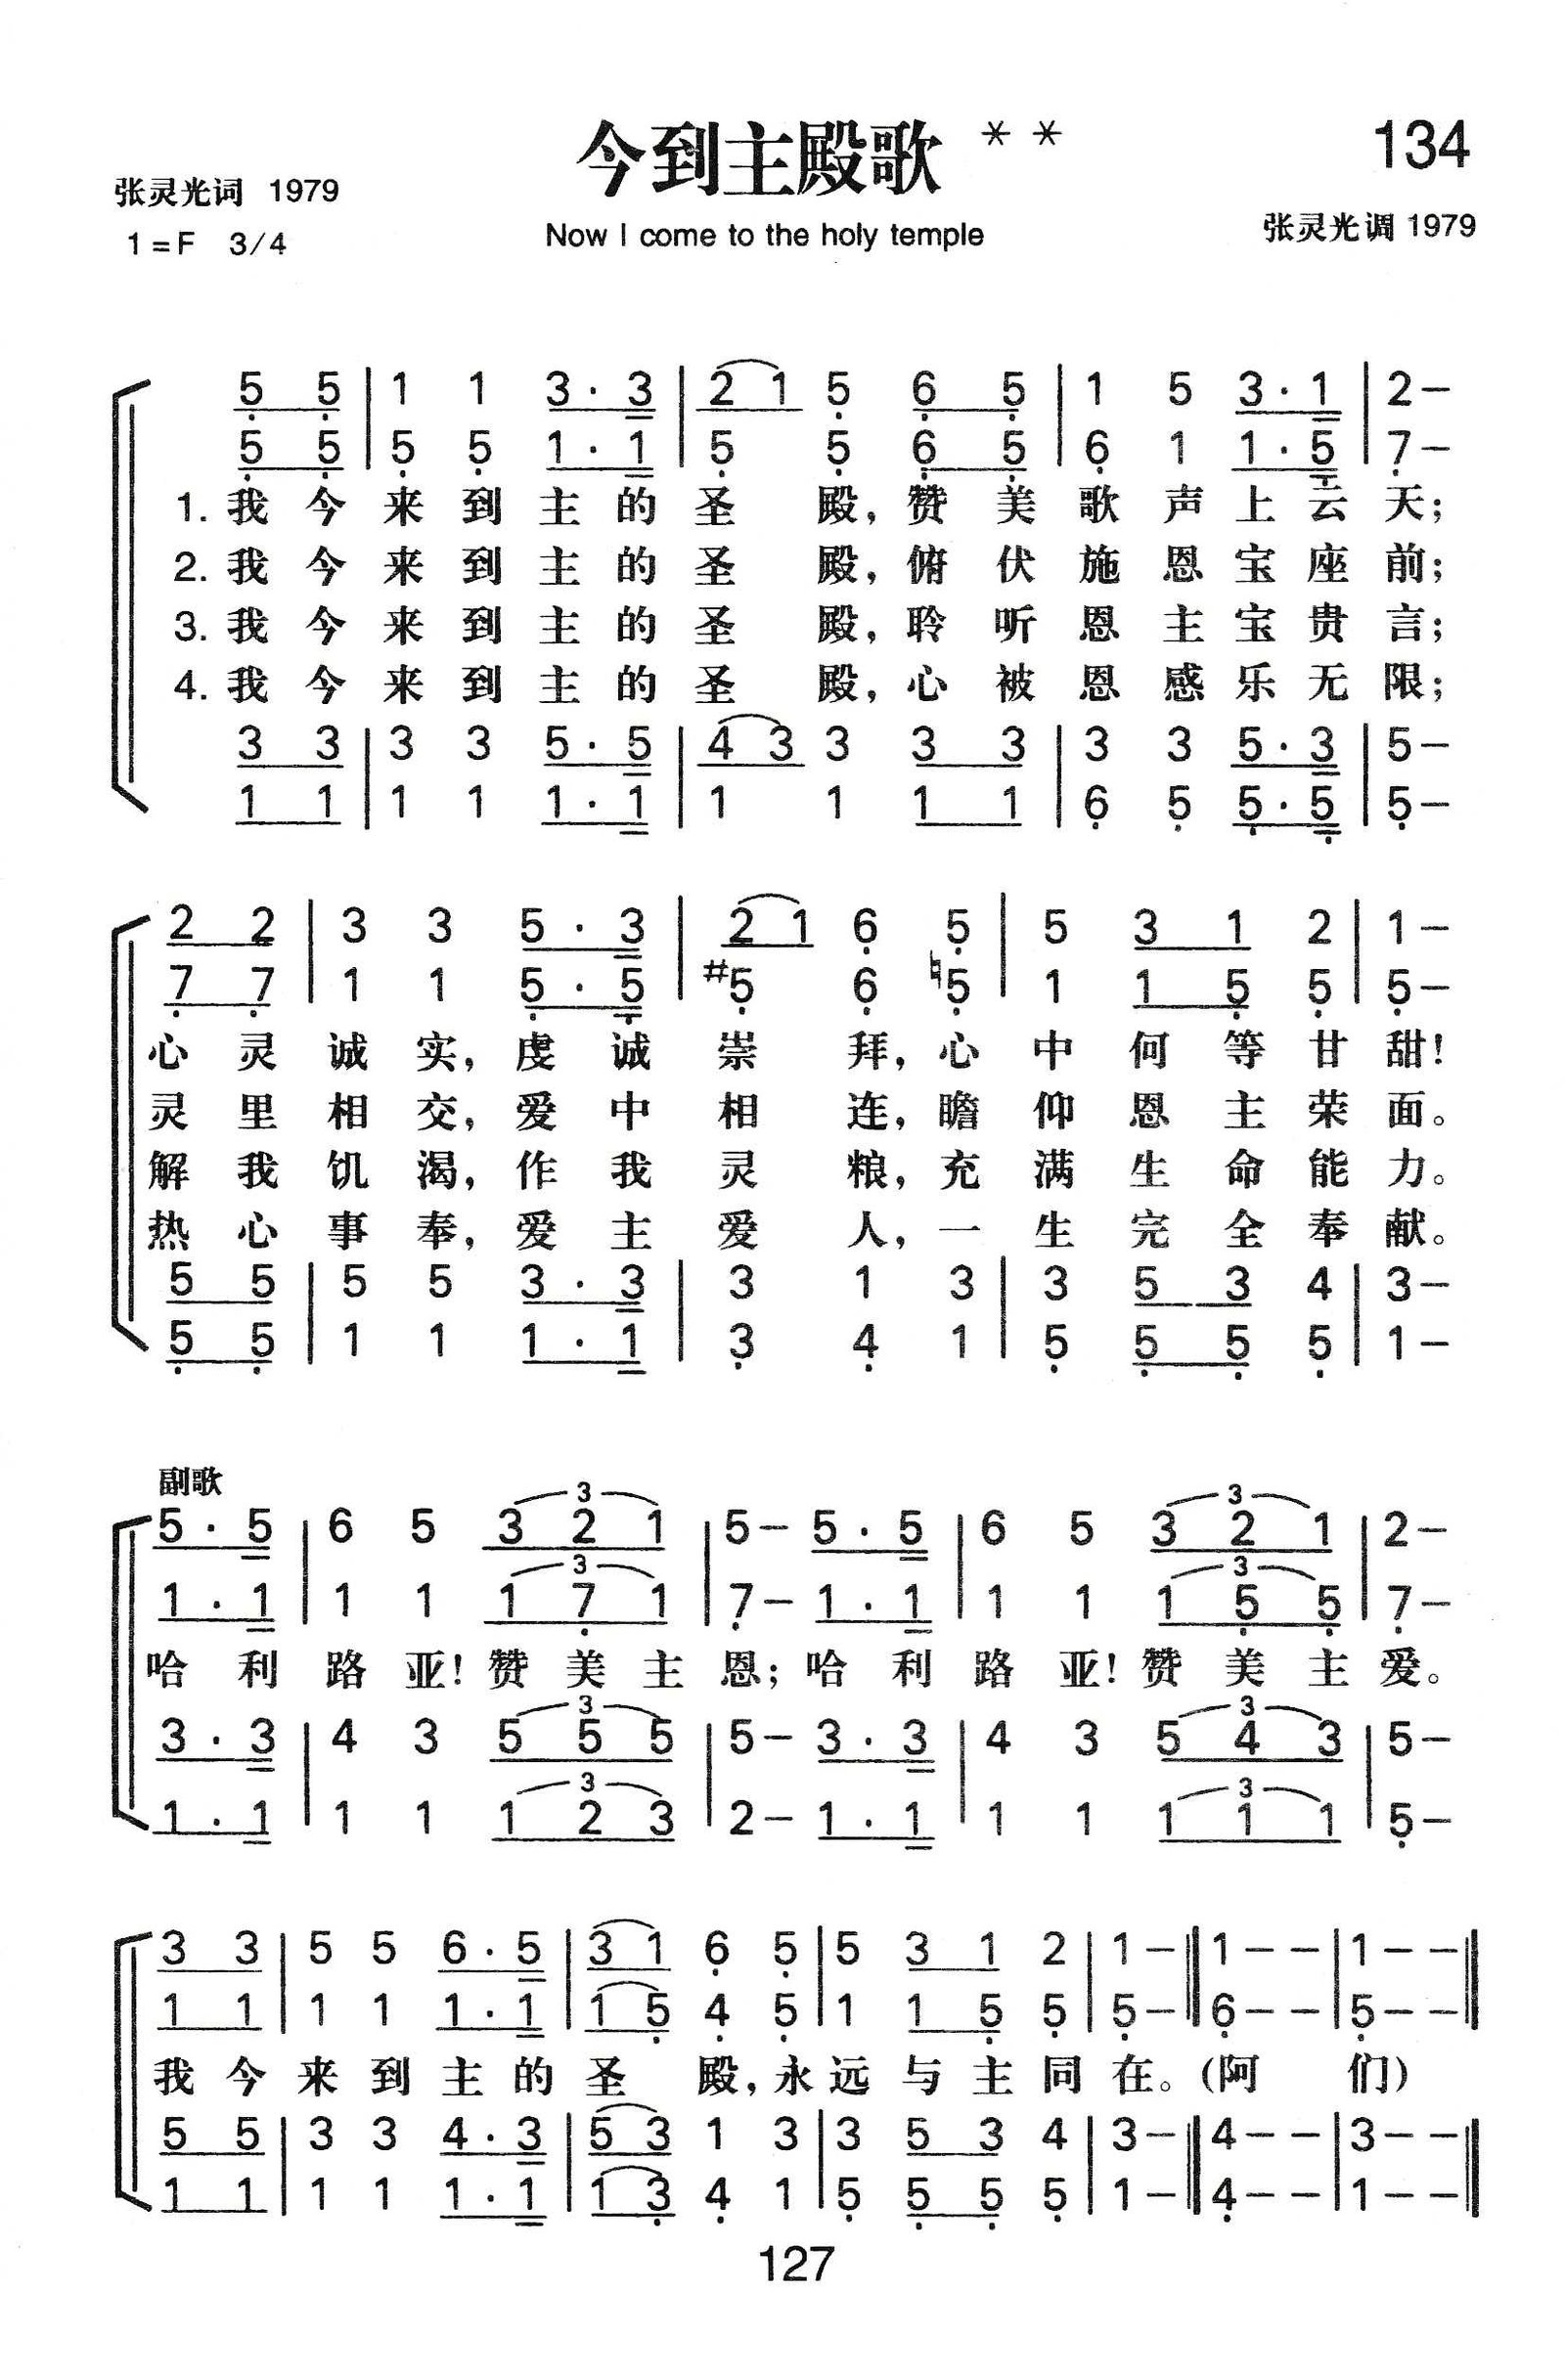 今到主殿歌 * *
134
张灵光词 1979
Now I come to the holy temple
张灵光调 1979
1=F 3/4
5 5 | 1 1 3·3 | 2 1 5 6 5 | 1 5 3·1 | 2–
5 5 | 5 5 1·1 | 5 5 6 5 | 6 1 1·5 | 7–
1. 我今来到主的圣殿，赞美歌声上云天；
2. 我今来到主的圣殿，俯伏施恩宝座前；
3. 我今来到主的圣殿，聆听恩主宝贵言；
4. 我今来到主的圣殿，心被恩感乐无限；
3 3 | 3 3 5·5 | 4 3 3 3 3 | 3 3 5·3 | 5–
1 1 | 1 1 1·1 | 1 1 1 1 | 6 5 5·5 | 5–
2 2 | 3 3 5·3 | 2 1 6 5 | 5 3 1 2 | 1–
7 7 | 1 1 5·5 | #5 6 ♮5 | 1 1 5 5 | 5–
心灵诚实，虔诚崇拜，心中何等甘甜！
灵里相交，爱中相连，瞻仰恩主荣面。
解我饥渴，作我灵粮，充满生命能力。
热心事奉，爱主爱人，一生完全奉献。
5 5 | 5 5 3·3 | 3 1 3 | 3 5 3 4 | 3–
5 5 | 1 1 1·1 | 3 4 1 | 5 5 5 5 | 1–
副歌
3 3
5·5 | 6 5 3 2 1 | 5– 5·5 | 6 5 3 2 1 | 2–
3 3
1·1 | 1 1 1 7 1 | 7– 1·1 | 1 1 1 5 5 | 7–
哈利路亚！赞美主恩；哈利路亚！赞美主爱。
3 3
3·3 | 4 3 5 5 5 | 5– 3·3 | 4 3 5 4 3 | 5–
3 3
1·1 | 1 1 1 2 3 | 2– 1·1 | 1 1 1 1 1 | 5–
3 3 | 5 5 6·5 | 3 1 6 5 | 5 3 1 2 | 1– ‖ 1–– | 1–– ‖
1 1 | 1 1 1·1 | 1 5 4 5 | 1 1 5 5 | 5– ‖ 6–– | 5–– ‖
我今来到主的圣殿，永远与主同在。(阿们)
5 5 | 3 3 4·3 | 5 3 1 3 | 3 5 3 4 | 3– ‖ 4–– | 3–– ‖
1 1 | 1 1 1·1 | 1 3 4 1 | 5 5 5 5 | 1– ‖ 4–– | 1–– ‖
127